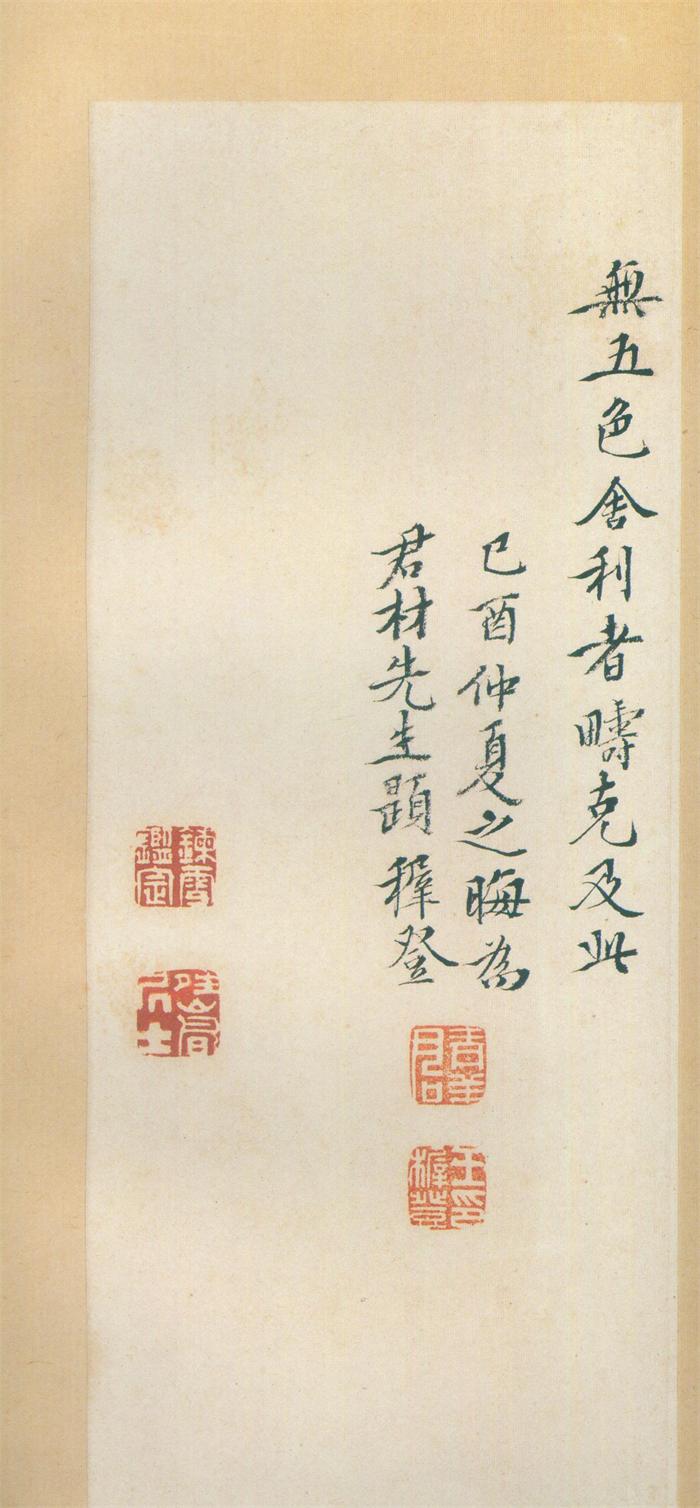 無五色舍利者疇克及此
己酉仲夏之晦為
君材先生題穉登
王印穉登
鑑定